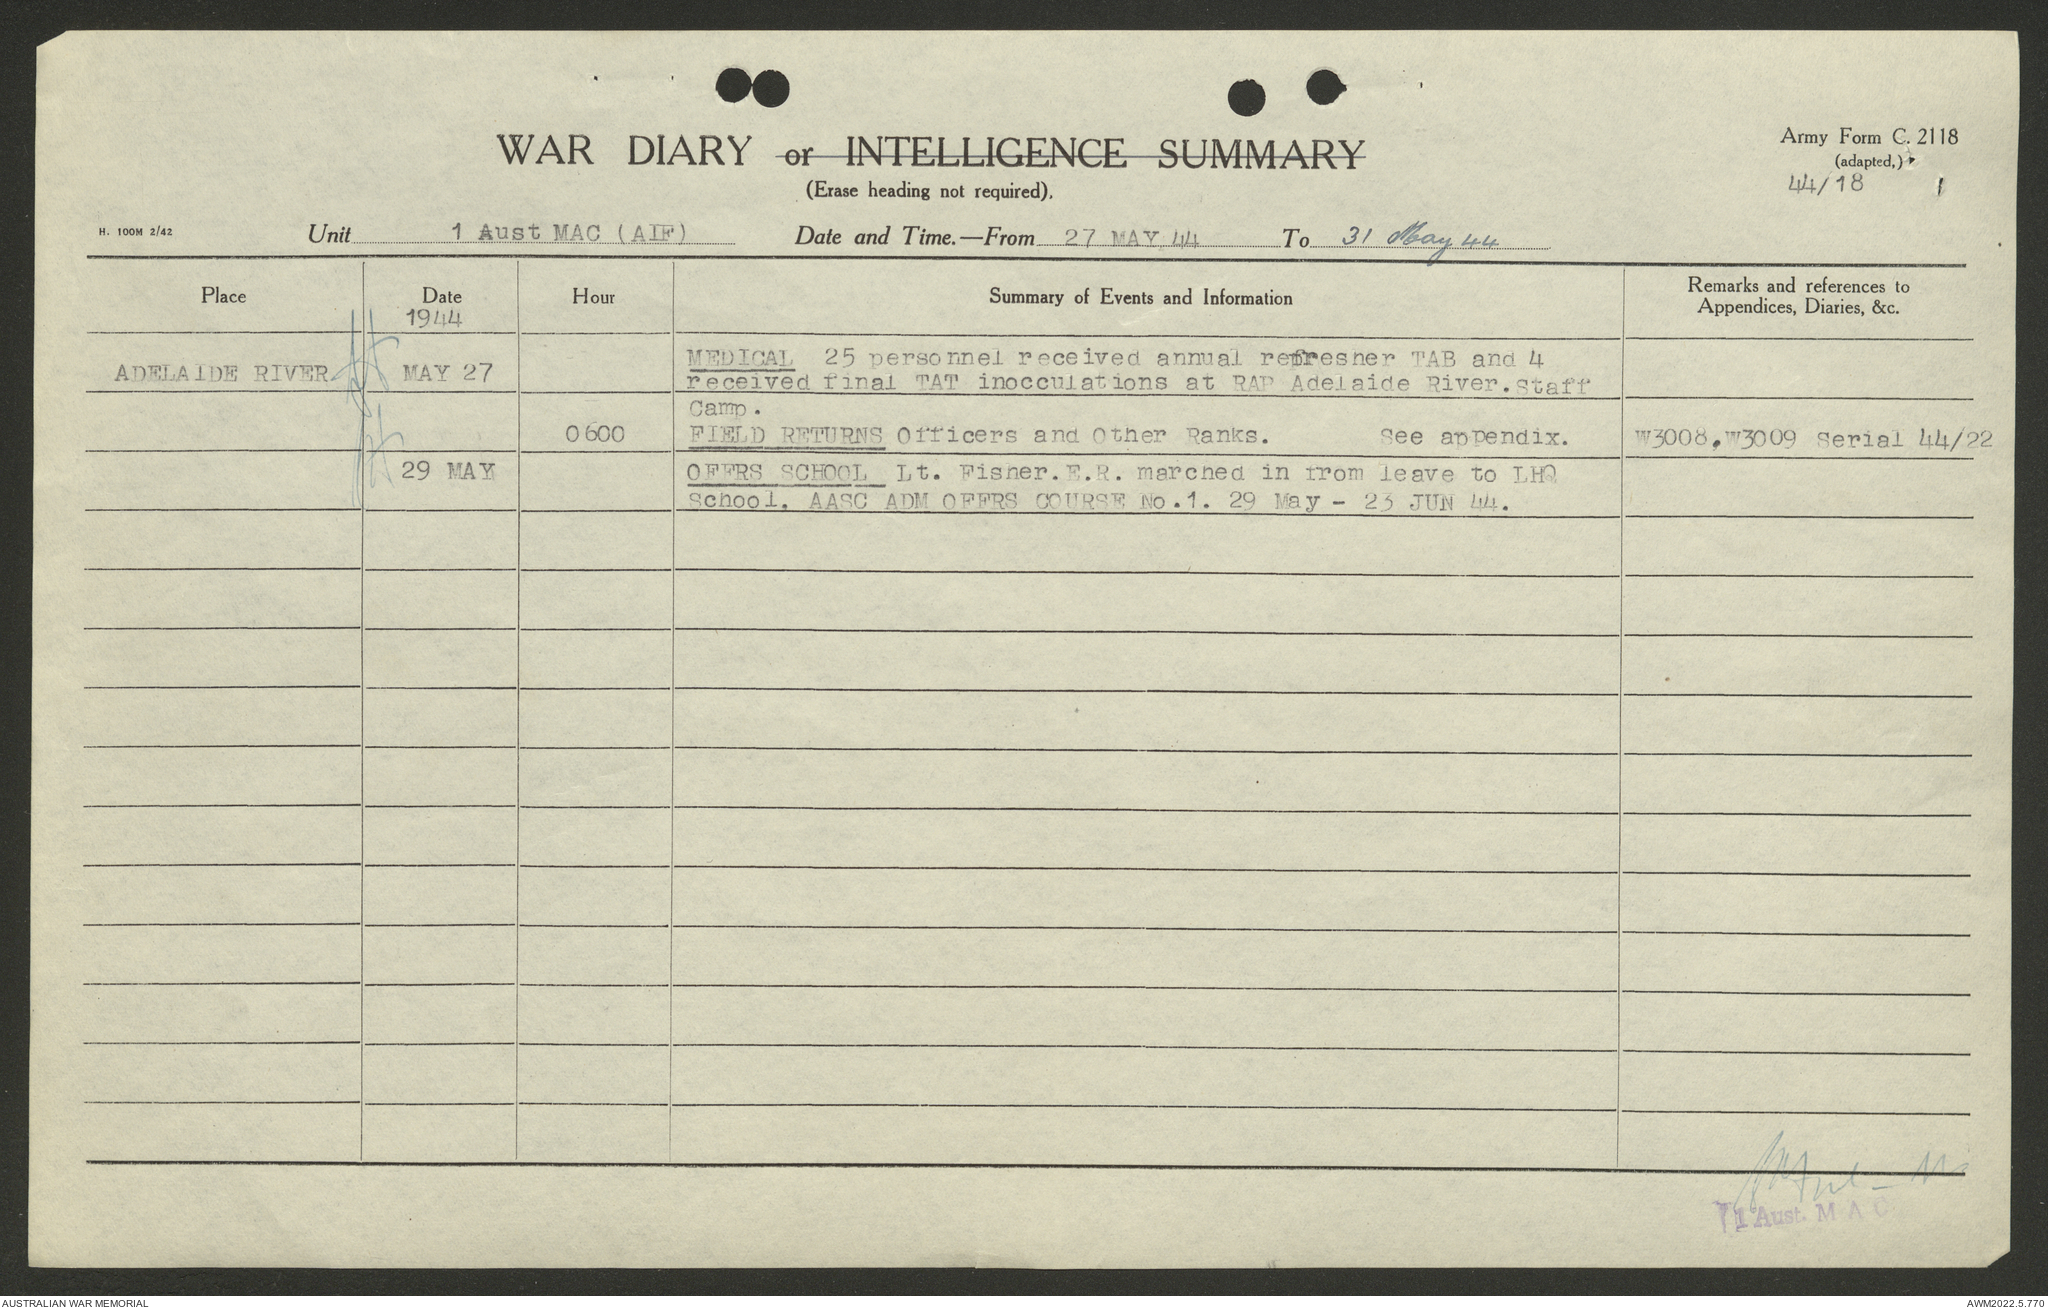 WAR DIARY or INTELLIGENCE SUMMARY
(Erase heading not required).
Army Form C. 2118
(adapted,)
44/18 1
H. 100M 2/42
Unit 1 Aust MAC (AIF) Date and Time.—From 27 MAY 44 To 31 May 44
Place Date Hour Summary of Events and Information Remarks and references to
Appendices, Diaries, &c.
1944
MEDICAL 25 personnel received annual refresher TAB and 4
ADELAIDE RIVER MAY 27 received final TAT inocculations at RAP Adelaide River.Staff
Camp.
0600 FIELD RETURNS Officers and Other Ranks. See appendix. W3008,W3009 Serial 44/22
29 MAY OFFRS SCHOOL Lt. Fisher.E.R. marched in from leave to LHQ
School. AASC ADM OFFRS COURSE No.1. 29 May - 23 JUN 44.
1 Aust. M A C
AUSTRALIAN WAR MEMORIAL
AWM2022.5.770